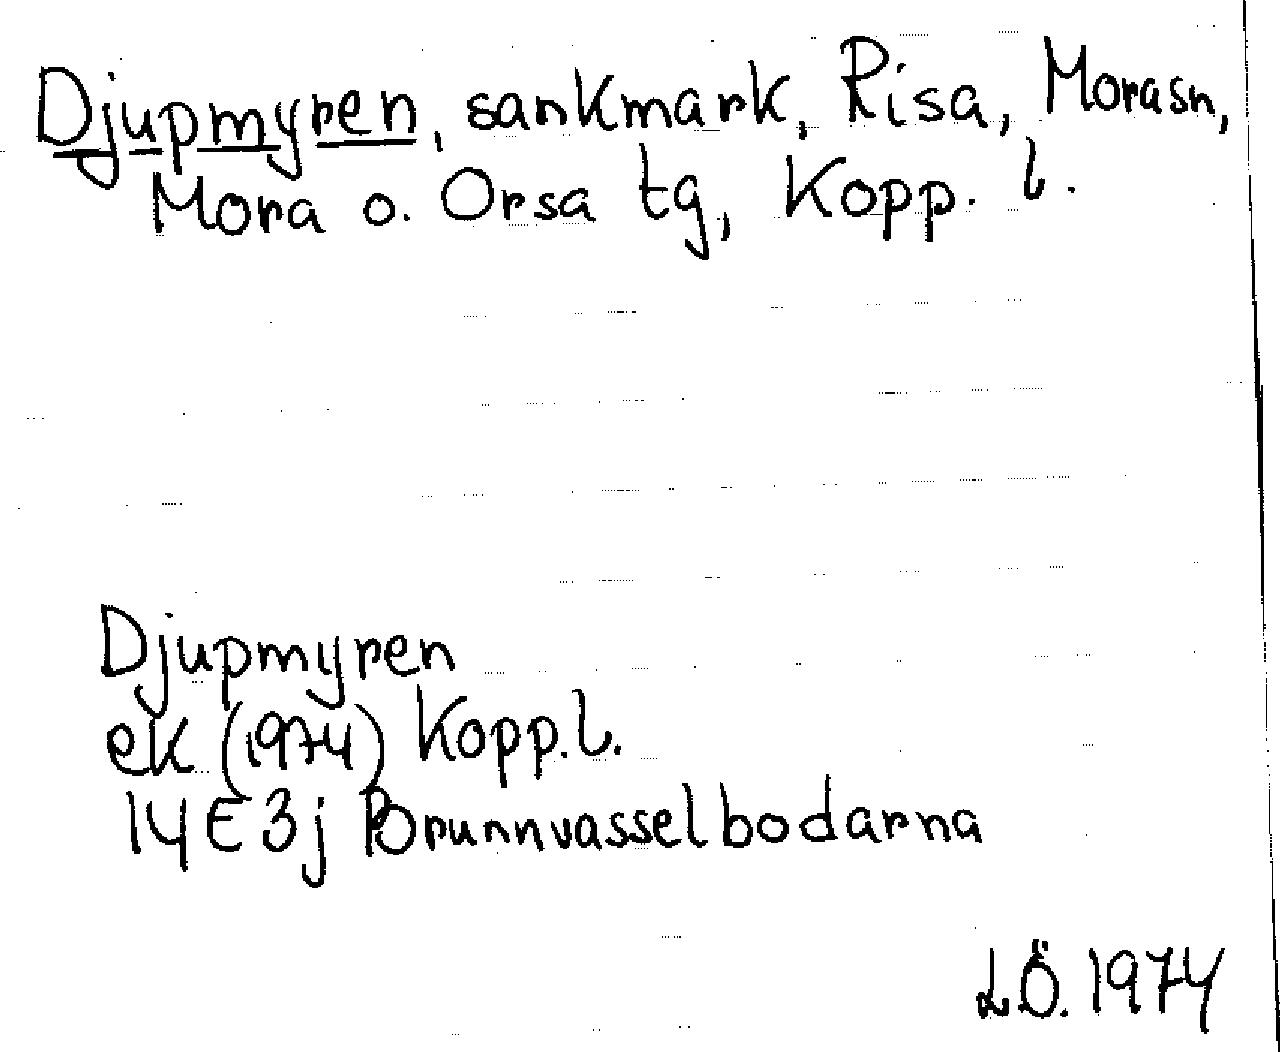 Djupmyren, sankmark, Risa, Morasn,
Mora o. Orsa tg, Kopp. l.
Djupmyren
ek (1974) Kopp.l.
14E3j Brunnvasselbodarna
LÖ. 1974